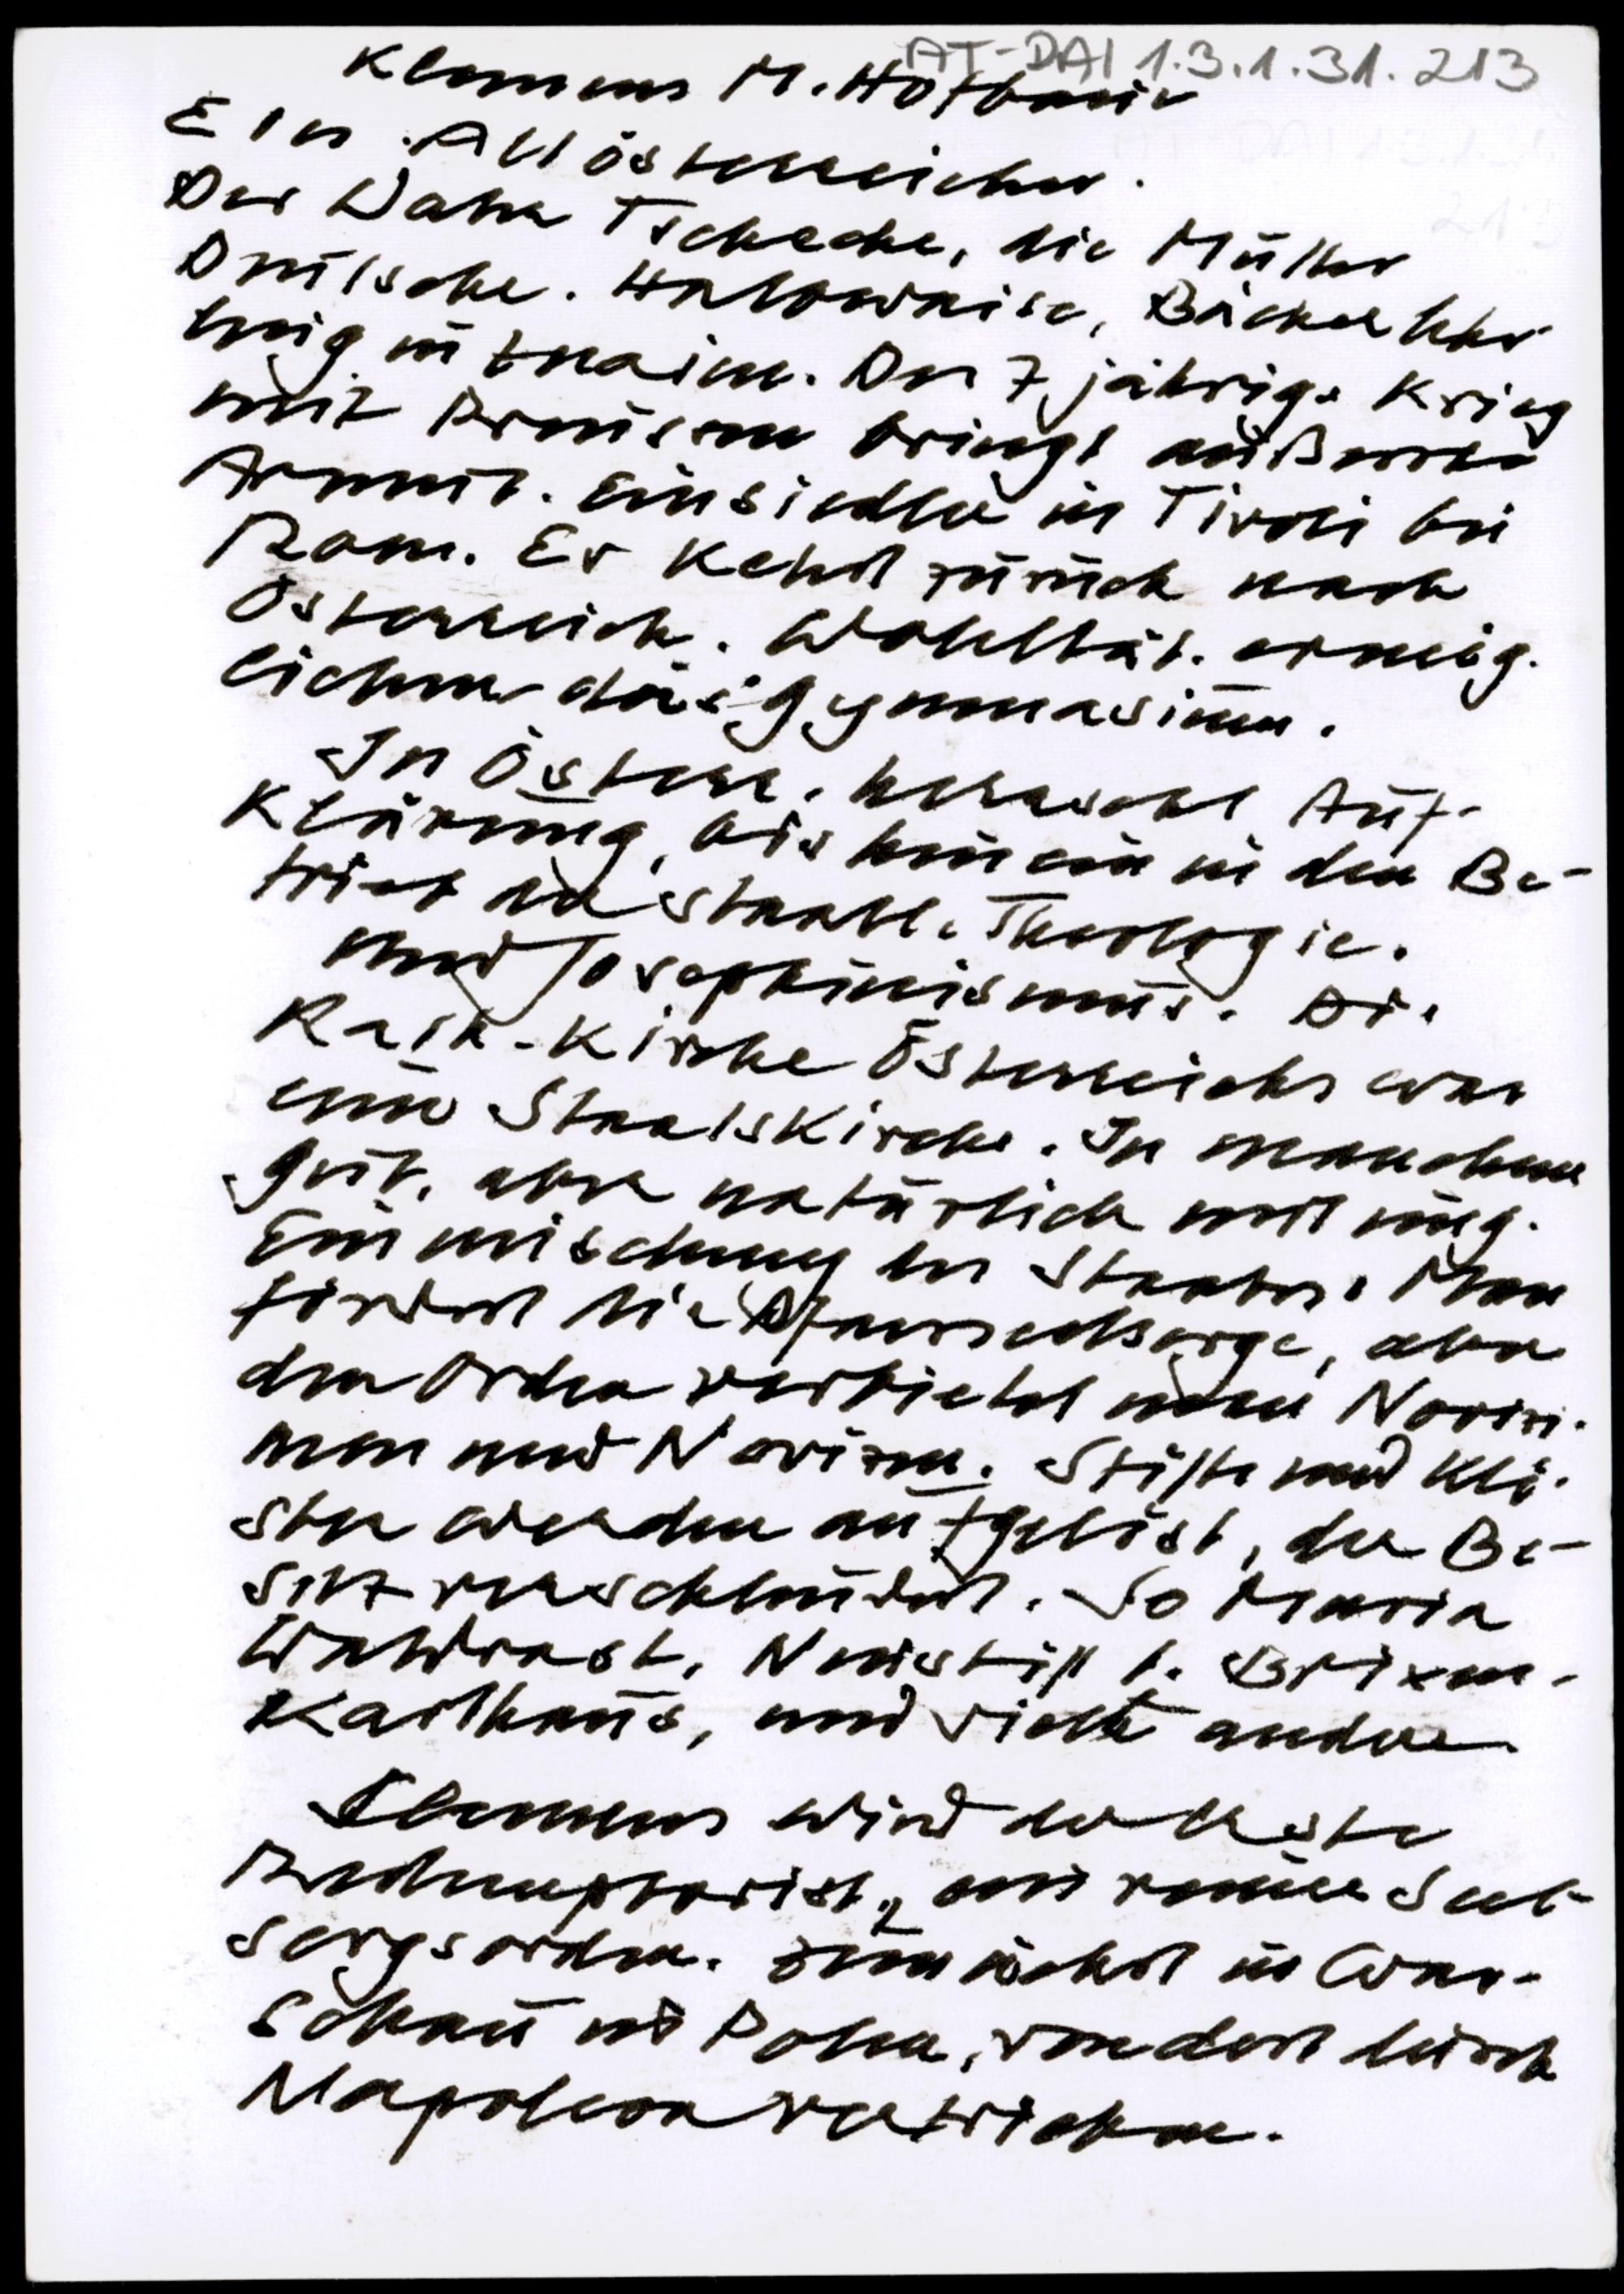 AT-DAI 1.3.1.31.213
Klemens M. Hofbauer
Ein Altösterreicher.
Der Vater Tscheche, die Mutter
Deutsche. Halbwaise, Bäckerlehr-
ling in Znaim. Der 7 jährige Krieg
mit Preussen bringt äußerste
Armut. Einsiedler in Tivoli bei
Rom. Er kehrt zurück nach
Österreich. Wohltät. ermög-
lichen das Gymnasium.
In Österr. herrscht Auf-
klärung, bis hinein in den Be-
trieb der staatl. Theologie.
und Josephinismus. Die
Kath. Kirche Österreichs war
eine Staatskirche. In manchem
gut, aber natürlich mit
Einmischung des Staates. Man
fördert die Pfarrseelsorge, aber
den Orden verbietet man Novizi-
nnen und Novizen. Stifte und Klö-
ster werden aufgelöst, der Be-
sitz verschleudert. So Maria
Waldrast, Neustift b. Brixen.
Karthaus, und viele andere.
Clemens wird der erste
Redemptorist, ein neuer Seel-
sorgsorden. Zunächst in War-
schau in Polen, von dort durch
Napoleon vertrieben.